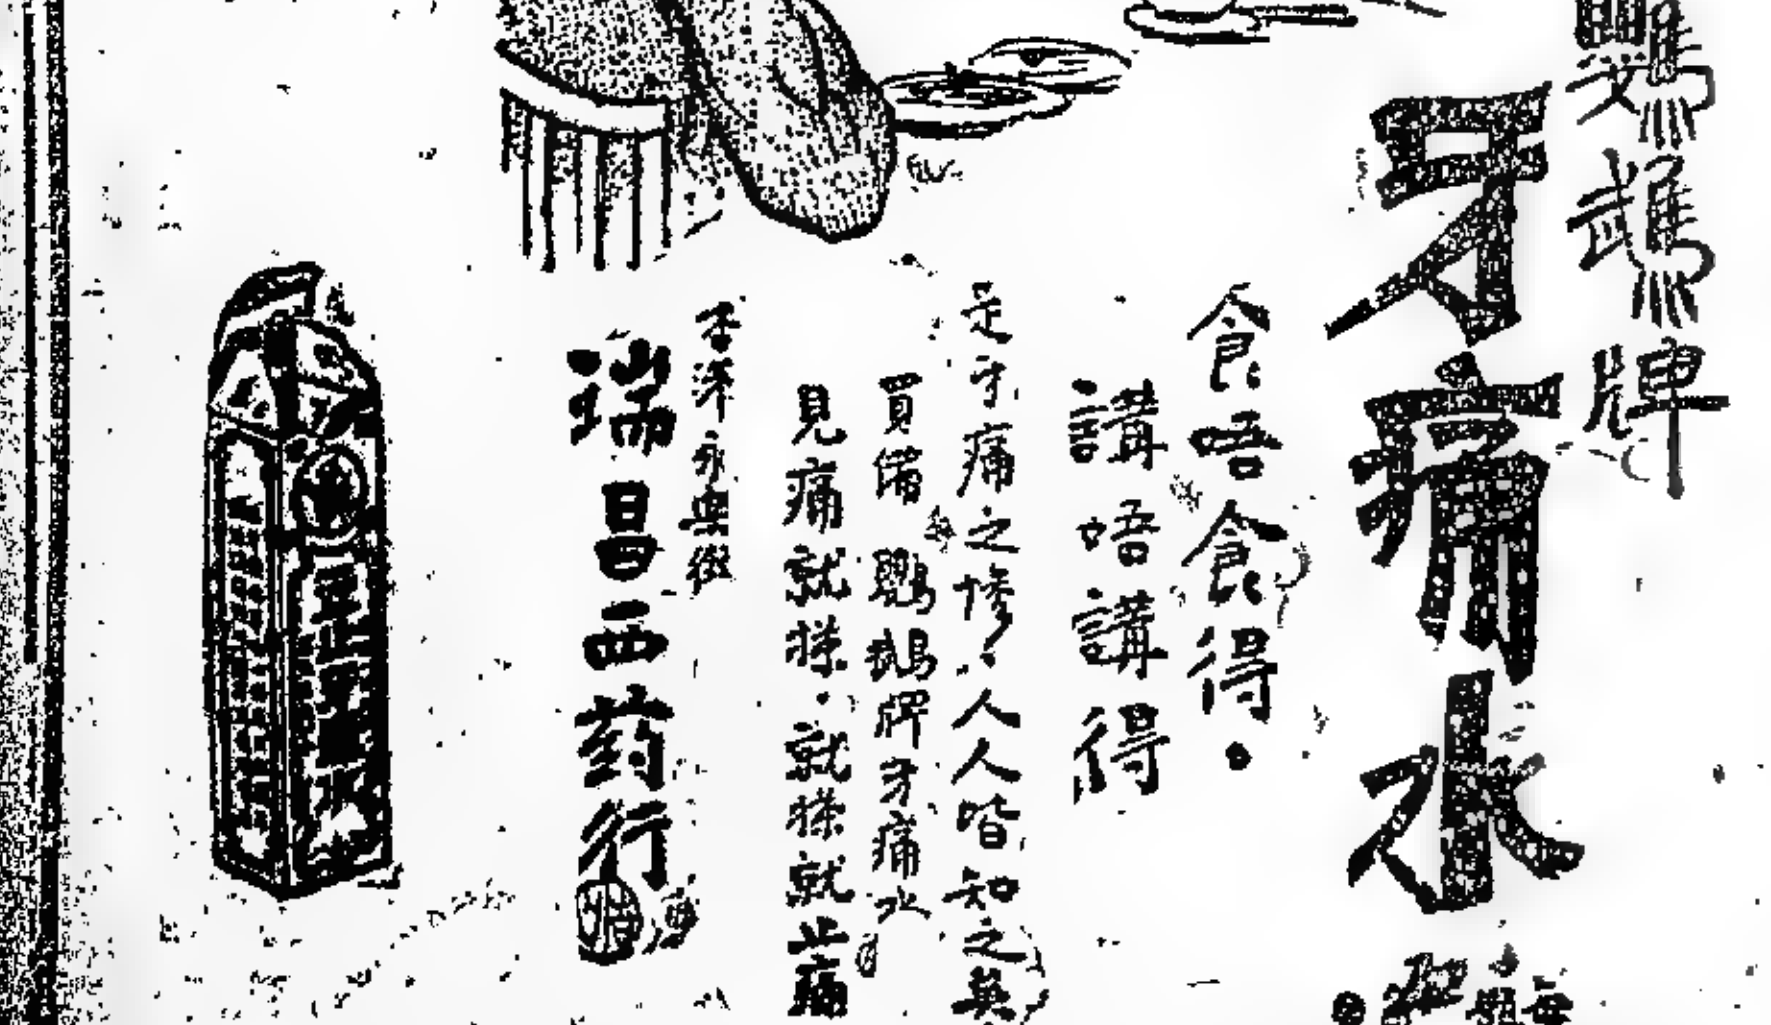 鸚鵡牌
牙痛水
食唔食得。
講唔講得
是牙痛之慘，人人皆知之矣
買備 鸚鵡牌牙痛水
見痛就搽．就搽就止痛
香港永樂街
瑞昌西葯行